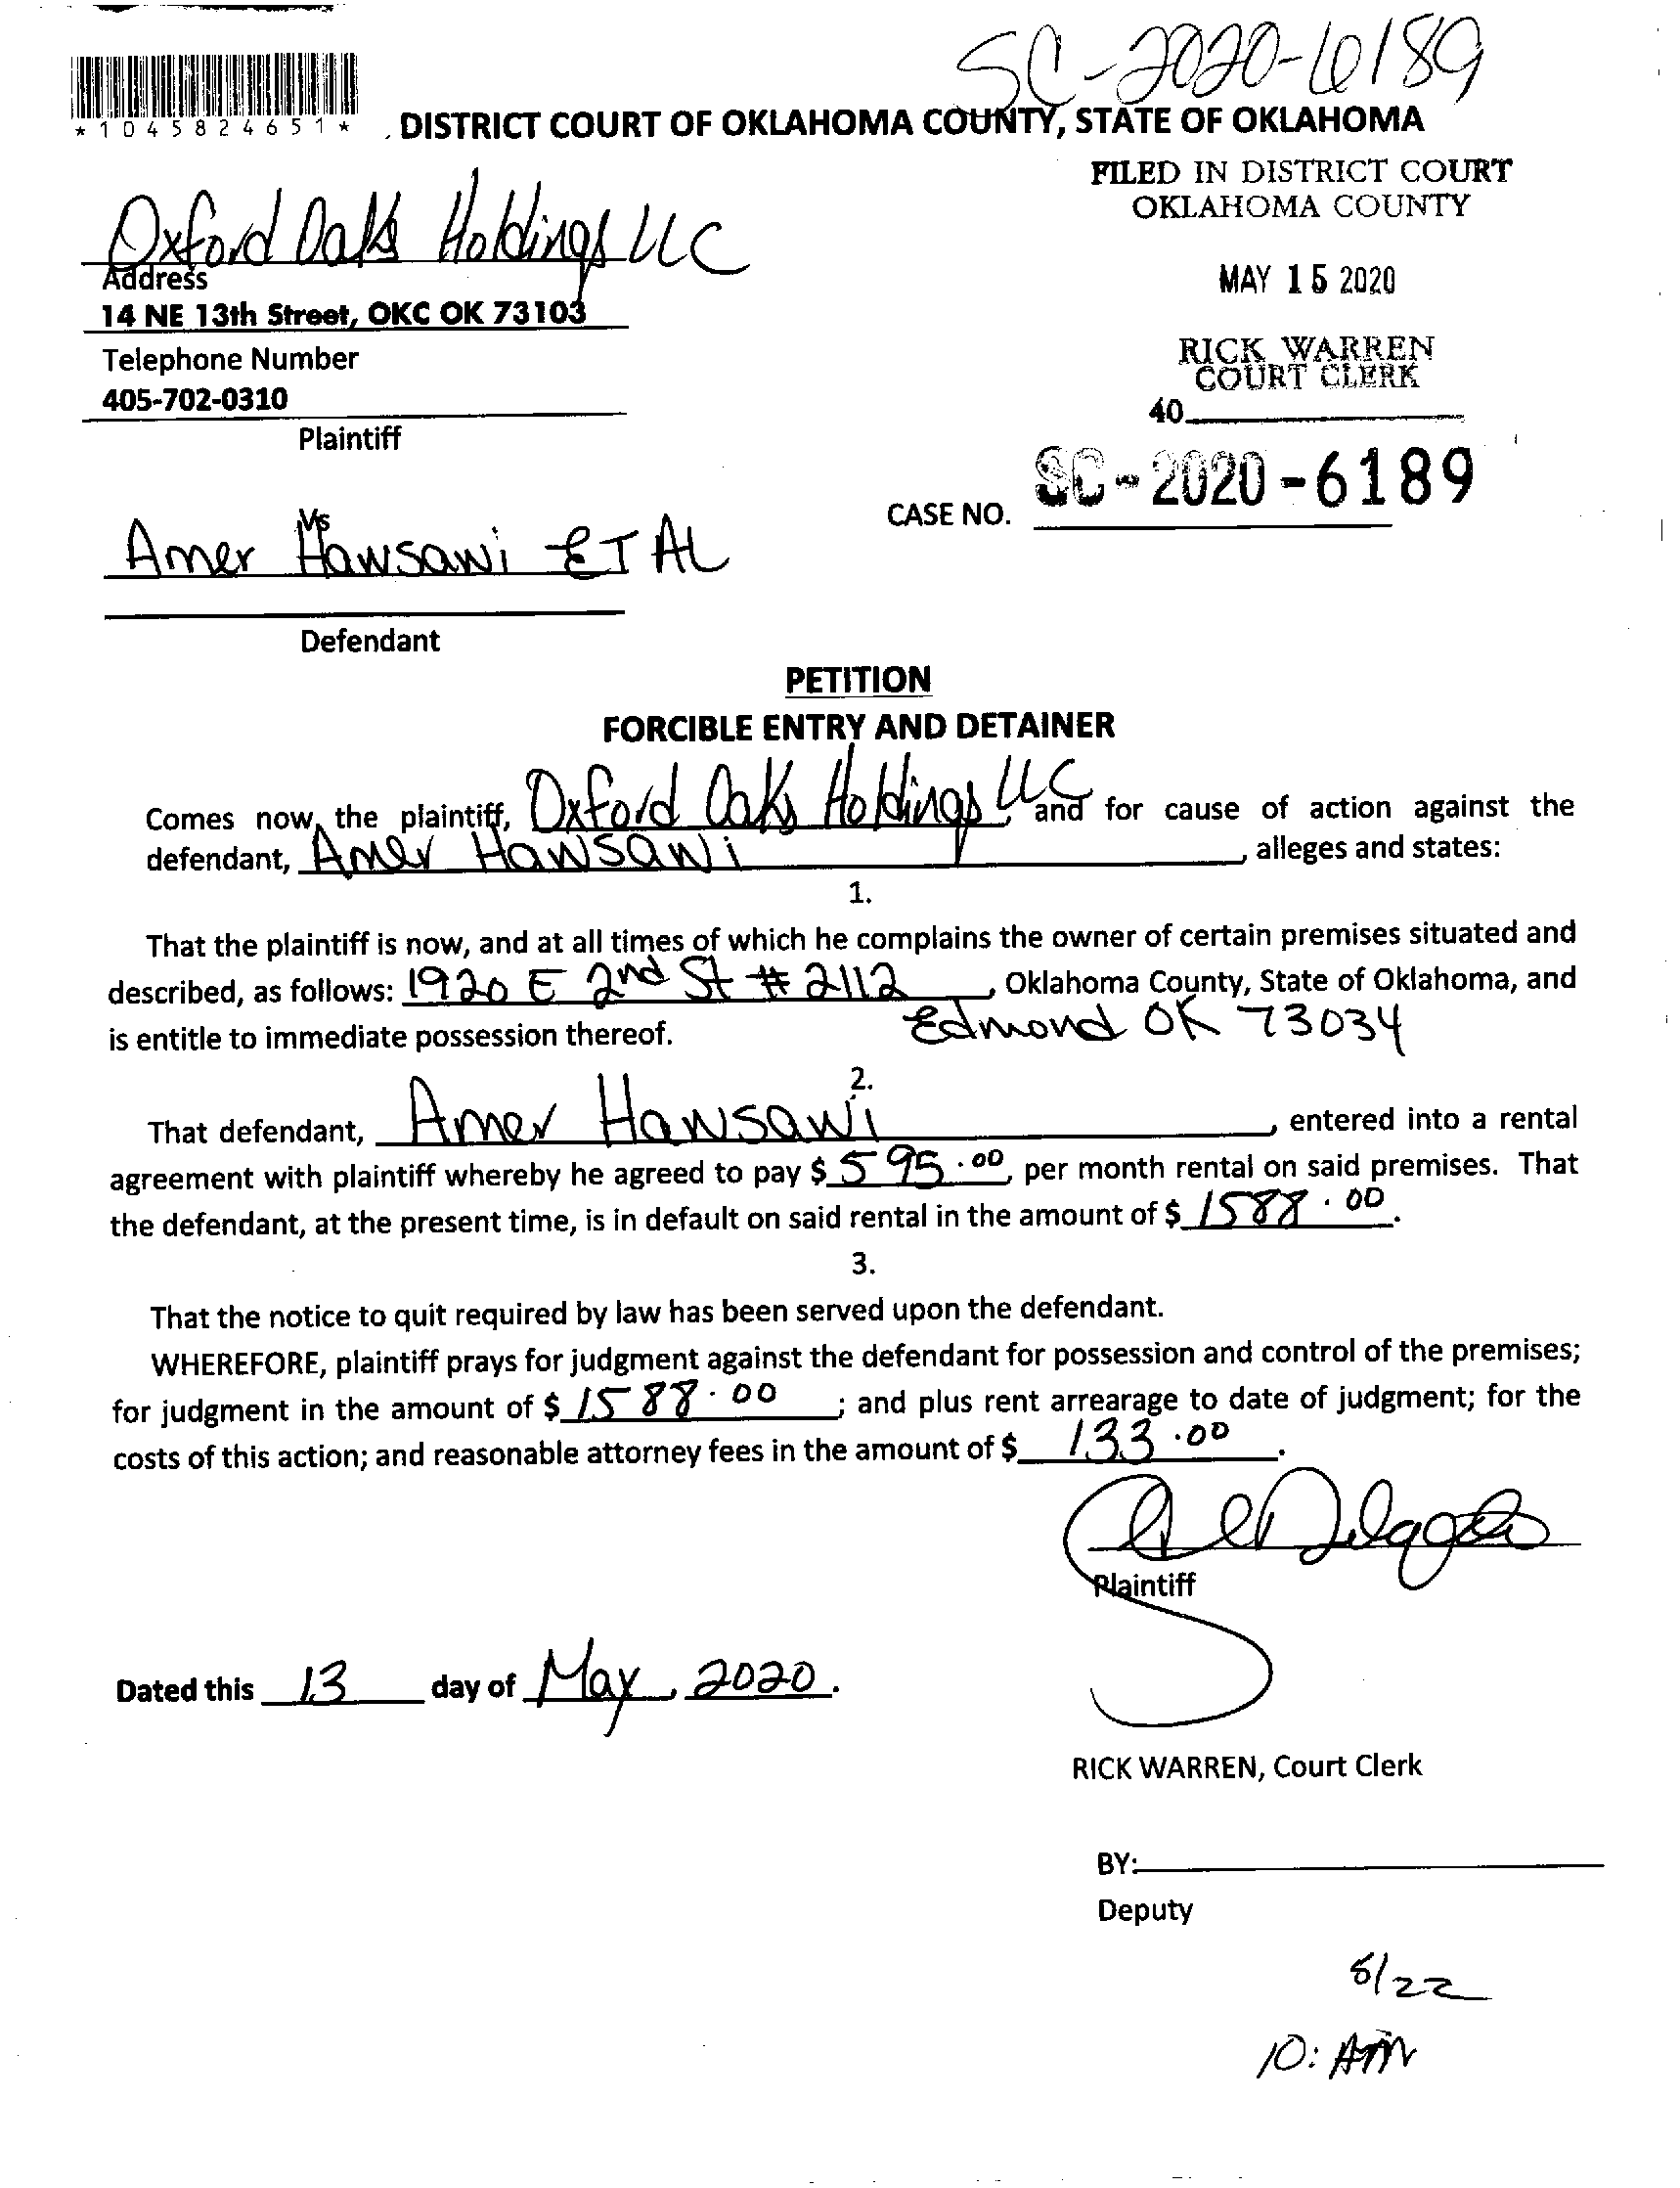 SC-2020-6189
*1045824651*
DISTRICT COURT OF OKLAHOMA COUNTY, STATE OF OKLAHOMA
FILED IN DISTRICT COURT
OKLAHOMA COUNTY
Oxford Oaks Holdings LLC
Address
14 NE 13th Street, OKC OK 73103
MAY 15 2020
Telephone Number
405-702-0310
RICK WARREN
COURT CLERK
40
Plaintiff
CASE NO. SC-2020-6189
Vs
Amer Hawsawi ET AL
Defendant
PETITION
FORCIBLE ENTRY AND DETAINER
Comes now, the plaintiff, Oxford Oaks Holdings LLC, and for cause of action against the
defendant, Amer Hawsawi, alleges and states:
1.
That the plaintiff is now, and at all times of which he complains the owner of certain premises situated and
described, as follows: 1920 E 2nd St # 2112, Oklahoma County, State of Oklahoma, and
is entitle to immediate possession thereof. Edmond OK 73034
2.
That defendant, Amer Hawsawi, entered into a rental
agreement with plaintiff whereby he agreed to pay $ 595.00, per month rental on said premises. That
the defendant, at the present time, is in default on said rental in the amount of $ 1588.00.
3.
That the notice to quit required by law has been served upon the defendant.
WHEREFORE, plaintiff prays for judgment against the defendant for possession and control of the premises;
for judgment in the amount of $ 1588.00; and plus rent arrearage to date of judgment; for the
costs of this action; and reasonable attorney fees in the amount of $ 133.00.
Plaintiff
Dated this 13 day of May, 2020.
RICK WARREN, Court Clerk
BY:
Deputy
/22
10: AM